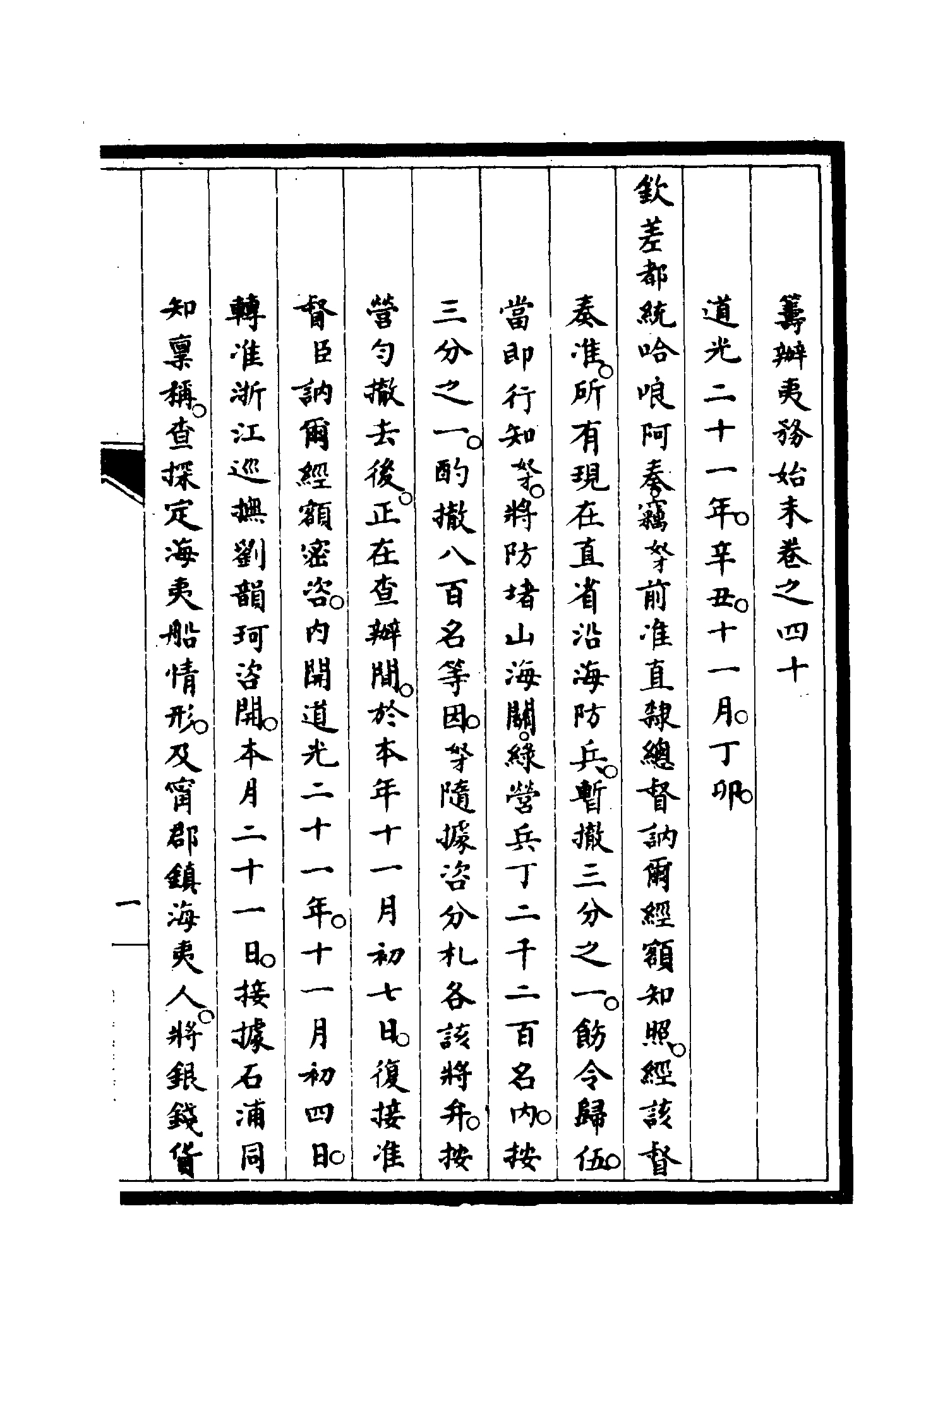 籌辦夷務始末卷之四十
道光二十一年。辛丑。十一月。丁卯。
欽差都統哈哴阿奏。竊奴才前准直隸總督訥爾經額知照。經該督
奏准。所有現在直省沿海防兵。暫撤三分之一。飭令歸伍。
當即行知奴才。將防堵山海關。綠營兵丁二千二百名內。按
三分之一。酌撤八百名等因。奴才隨據咨分札各該將弁。按
營勻撤去後。正在查辦間。於本年十一月初七日。復接准
督臣訥爾經額密咨。內開道光二十一年。十一月初四日。
轉准浙江巡撫劉韻珂咨開。本月二十一日。接據石浦同
知稟稱。查探定海夷船情形。及甯郡鎮海夷人。將銀錢貨
一